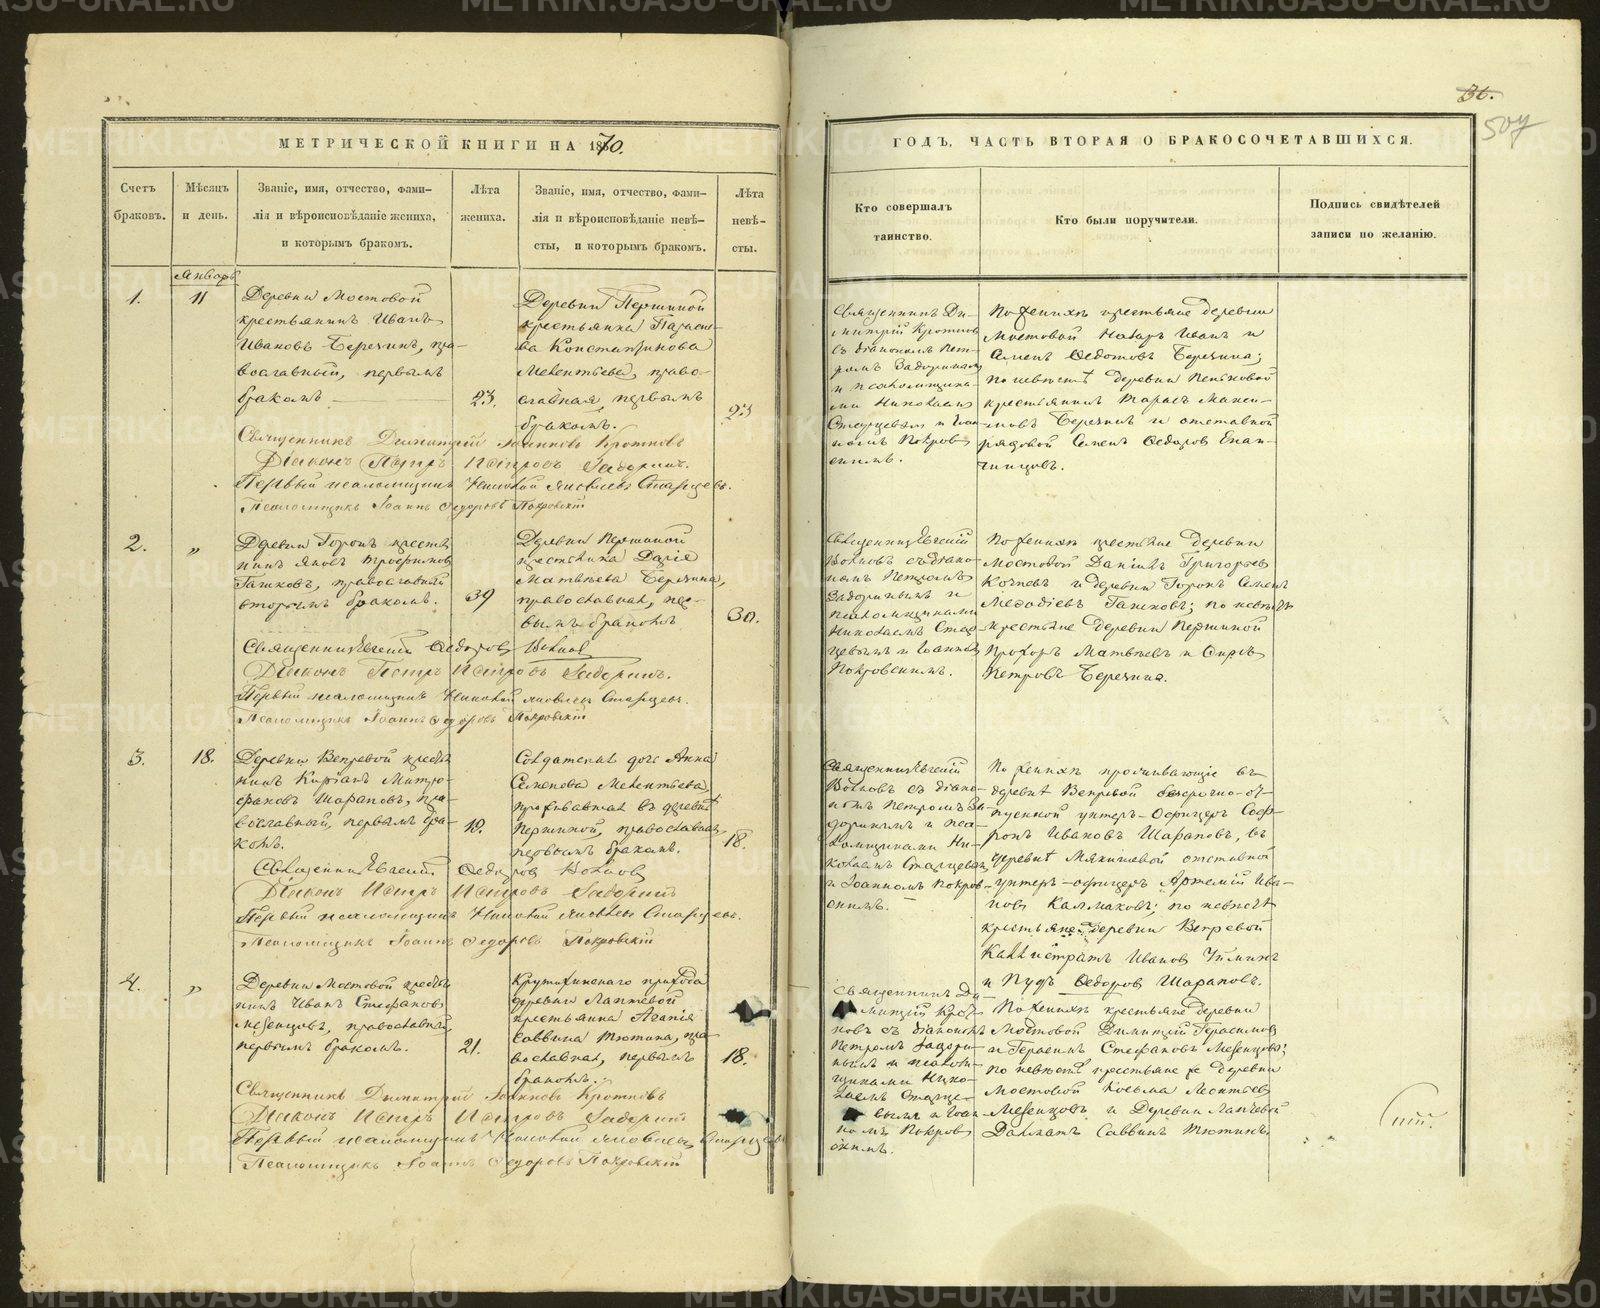 МЕТРИЧЕСКОЙ КНИГИ НА 1870.
Счетъ браковъ.
Мѣсяцъ и день.
Званіе, имя, отчество, фами-
лія и вѣроисповѣданіе жениха,
и которымъ бракомъ.
Лѣта жениха.
Званіе, имя, отчество, фами-
лія и вѣроисповѣданіе невѣ-
сты, и которымъ бракомъ.
Лѣта невѣ-
сты.
Январь
1.
11
Деревни Мостовой
крестьянинъ Иванъ
Ивановъ Беречинъ, пра-
вославный, первымъ
бракомъ
23.
Деревни Першиной
крестьянка Параске-
ва Константинова
Мелентьева, право-
славная, первымъ
бракомъ.
23
Священникъ Димитрій Іоанновъ Кротковъ
Діаконъ Петръ Петровъ Задоринъ.
Первый псаломщикъ Николай Яковлевъ Старцевъ.
Псаломщикъ Іоаннъ Ѳедоровъ Покровскій
2.
"
Деревни Горокъ кресть
нинъ Яковъ Трофимовъ
Гашковъ, православный
вторымъ бракомъ.
39
Деревни Першиной
крестьянка Дарія
Матвѣева Беречина,
православная, пер-
вымъ бракомъ.
30.
Священникъ Евгеній Ѳедоровъ Волковъ
Діаконъ Петръ Петровъ Задоринъ.
Первый псаломщикъ Николай Яковлевъ Старцевъ.
Псаломщикъ Іоаннъ Ѳедоровъ Покровскій
3.
18.
Деревни Вепревой кресть
нинъ Киріанъ Митро-
фановъ Шараповъ, пра-
вославный, первымъ бра-
комъ.
19.
Солдатская дочь Анна
Семенова Мелентьева,
проживавшая въ деревнѣ
Першиной, православная,
первымъ бракомъ.
18.
Священникъ Евгеній Ѳедоровъ Волковъ
Діаконъ Петръ Петровъ Задоринъ
Первый псаломщикъ Николай Яковлевъ Старцевъ.
Псаломщикъ Іоаннъ Ѳедоровъ Покровскій
4.
"
Деревни Мостовой кресть
нинъ Иванъ Стефановъ
Мезенцовъ, православный,
первымъ бракомъ.
21.
Крутихинскаго прихода
деревни Лаптевой
крестьянка Агапія
Саввина Тютина, пра-
вославная, первымъ
бракомъ.
18.
Священникъ Димитрій Іоанновъ Кротковъ
Діаконъ Петръ Петровъ Задоринъ
Первый псаломщикъ Николай Яковлевъ Старцевъ
Псаломщикъ Іоаннъ Ѳедоровъ Покровскій
36.
507
ГОДЪ, ЧАСТЬ ВТОРАЯ О БРАКОСОЧЕТАВШИХСЯ.
Кто совершалъ
таинство.
Кто были поручители.
Подпись свидѣтелей
записи по желанію.
Священникъ Ди-
митрій Кротковъ
съ діакономъ Пет-
ромъ Задоринымъ
и псаломщика-
ми Николаемъ
Старцевымъ и Іоан
номъ Покров-
скимъ.
По женихѣ крестьяне деревни
Мостовой Назаръ Иванъ и
Семенъ Ѳедотовъ Беречина;
по невѣстѣ деревни Пеньковой
крестьянинъ Тарасъ Макси-
мовъ Беречинъ и отставной
рядовой Семенъ Ѳедоровъ Епан-
чинцовъ.
Священникъ Евгеній
Волковъ съ діако-
номъ Петромъ
Задоринымъ и
псаломщиками
Николаемъ Стар
цевымъ и Іоанномъ
Покровскимъ.
По женихѣ крестьяне деревни
Мостовой Даніилъ Григорьевъ
Кочневъ и деревни Горокъ Семенъ
Меѳодіевъ Гашковъ; по невѣстѣ
крестьяне деревни Першиной
Прохоръ Матвѣевъ и Спиръ
Петровъ Беречина.
Священникъ Евгеній
Волковъ съ діако-
номъ Петромъ За-
доринымъ и пса-
ломщиками Ни-
колаемъ Старцевымъ
и Іоанномъ Покров-
скимъ.
По женихѣ проживающіе въ
деревнѣ Вепревой безсрочно-от-
пускной унтеръ-офицеръ Соф-
ронъ Ивановъ Шараповъ, въ
деревнѣ Мякишевой отставной
унтеръ-офицеръ Артемій Ива-
новъ Калмаковъ; по невѣстѣ
крестьяне деревни Вепревой
Каллистратъ Ивановъ Чиминъ
и Пудъ Ѳедоровъ Шараповъ.
Священникъ Ди-
митрій Крот-
ковъ съ діакономъ
Петромъ Задори-
нымъ и псалом-
щиками Нико-
лаемъ Старце-
вымъ и Іоан
номъ Покров
скимъ.
По женихѣ крестьяне деревни
Мостовой Димитрій Герасимовъ
и Герасимъ Стефановъ Мезенцовы;
по невѣстѣ крестьяне же деревни
Мостовой Косьма Леонтьевъ
Мезенцовъ и Деревни Лаптевой
Далматъ Саввинъ Тютинъ.